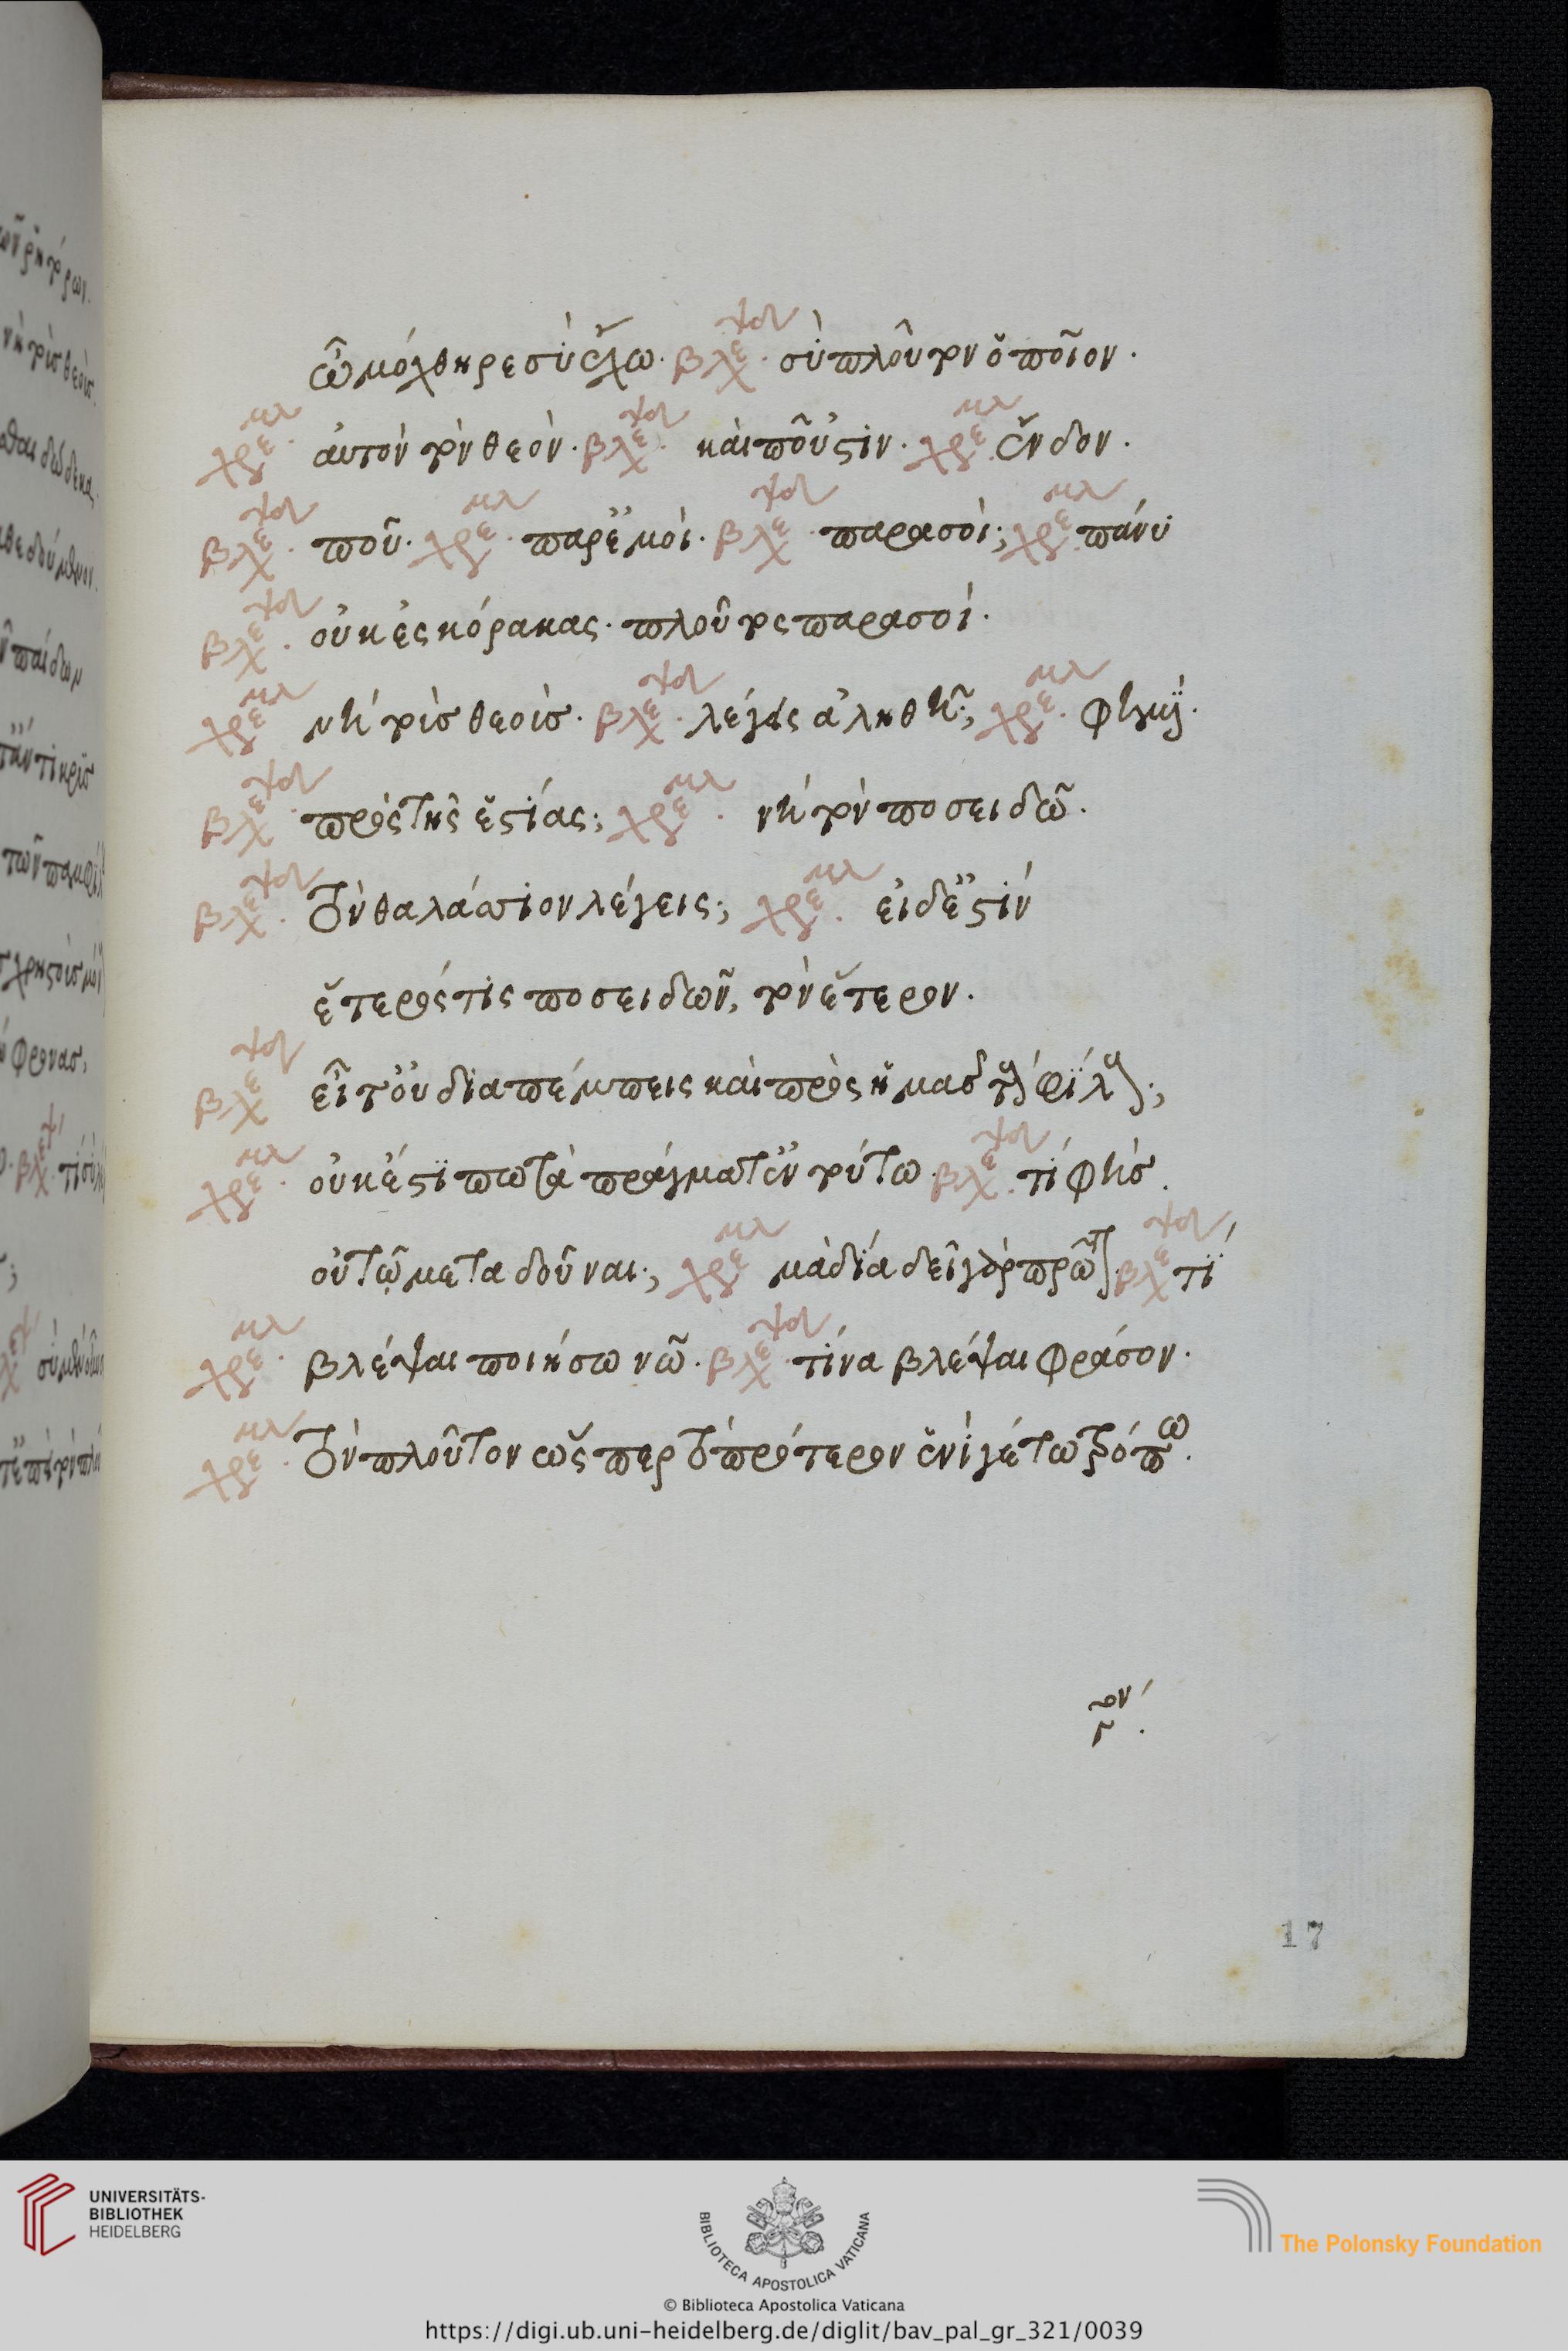 ὦ μόχθηρε σὺ ἔχω. βλεψ χ. σὺ πλοῦτον ὁποῖον.
χρε μλ. αὐτὸν τὸν θεὸν. βλεψ χ. καὶ ποῦ ᾿στιν. χρε μλ. ἔνδον.
βλεψ χ. ποῦ. χρε μλ. παρ' ἐμοὶ. βλεψ χ. παρὰ σοὶ; χρε μλ. πάνυ
βλεψ χ. οὐκ ἐς κόρακας. πλοῦτος παρὰ σοὶ.
χρε μλ. νὴ τοὺς θεοὺς. βλεψ χ. λέγεις ἀληθῆ; χρε μλ. φημὶ.
βλεψ χ. πρὸς τῆς ἑστίας; χρε μλ. νὴ τὸν ποσειδῶ.
βλεψ χ. τὸν θαλάττιον λέγεις; χρε μλ. εἰ δ' ἔστιν
ἕτερός τις ποσειδῶν, τὸν ἕτερον.
βλεψ χ. εἶτ' οὐ διαπέμπεις καὶ πρὸς ἡμᾶς τοὺς φίλους;
χρε μλ. οὐκ ἔστι πω τὰ πράγματ' ἐν τούτω. βλεψ χ. τί φής.
οὐ τῷ μεταδοῦναι; χρε μλ. μὰ δία δεῖ γὰρ πρῶτα βλεψ χ. τί
χρε μλ. βλέψαι ποιήσω νῶ. βλεψ χ. τίνα βλέψαι φράσον.
χρε μλ. τὸν πλοῦτον ὥσπερ τὸ πρότερον ἐνί γέ τω τρόπω.
17
UNIVERSITÄTS-
BIBLIOTHEK
HEIDELBERG
BIBLIOTECA APOSTOLICA VATICANA
The Polonsky Foundation
© Biblioteca Apostolica Vaticana
https://digi.ub.uni-heidelberg.de/diglit/bav_pal_gr_321/0039